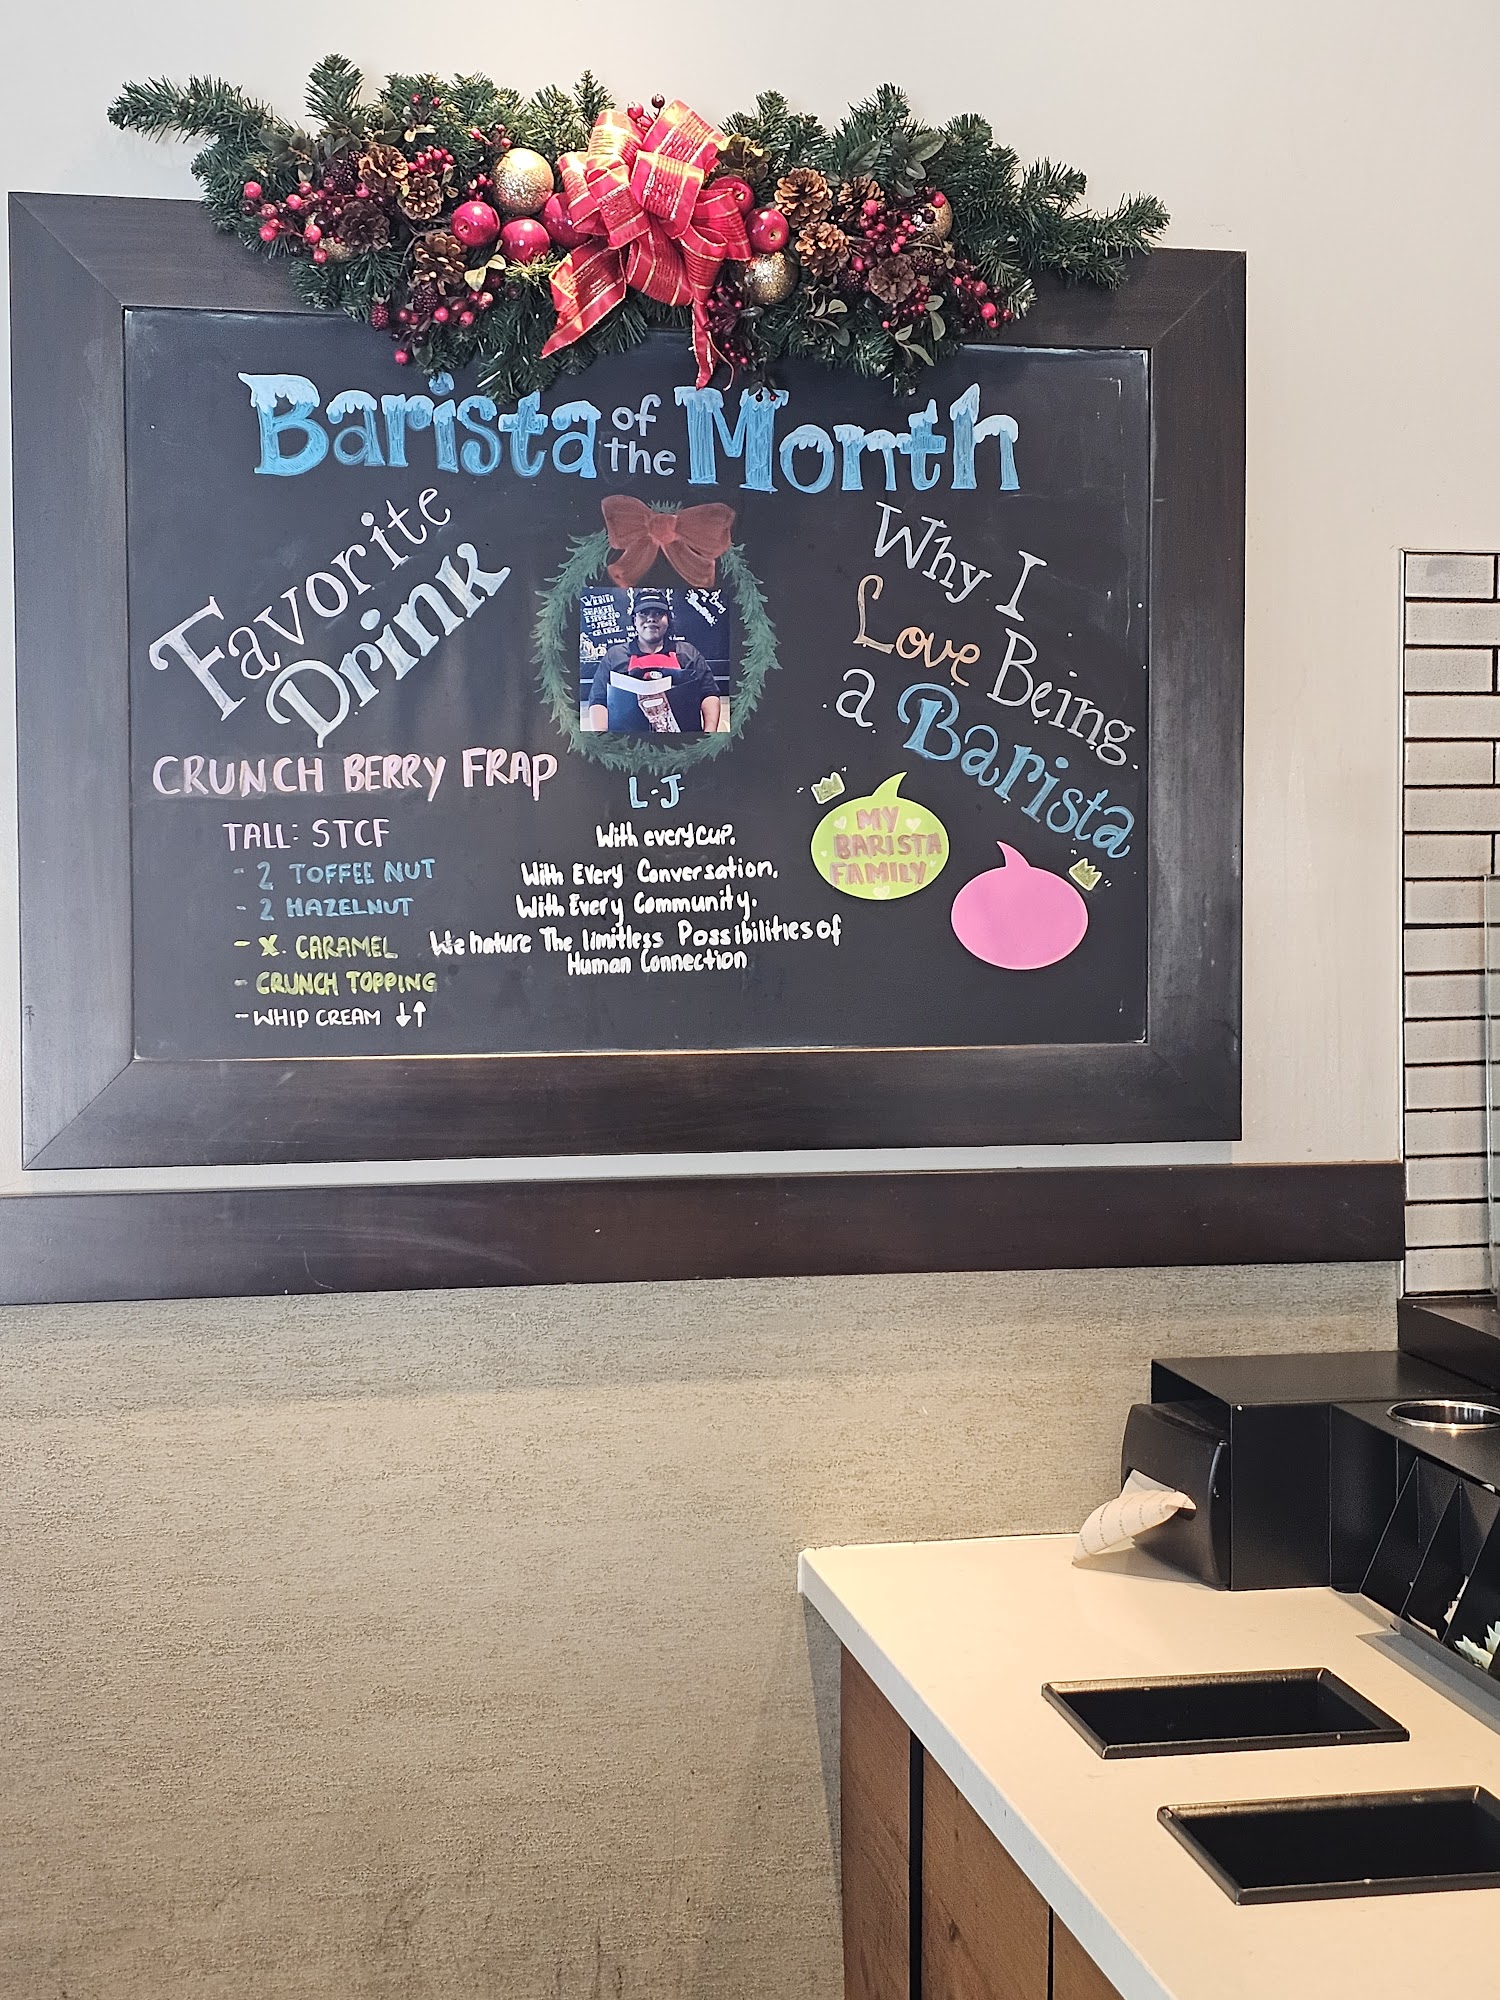 Barista of the Month
Favorite
Drink
CRUNCH BERRY FRAP
TALL: STCF
- 2 TOFFEE NUT
- 2 HAZELNUT
- X. CARAMEL
- CRUNCH TOPPING
- WHIP CREAM ↓↑
L-J
With every cup.
With Every Conversation.
With Every Community.
We nature The limitless Possibilities of
Human Connection
Why I
Love Being
a Barista
MY
BARISTA
FAMILY